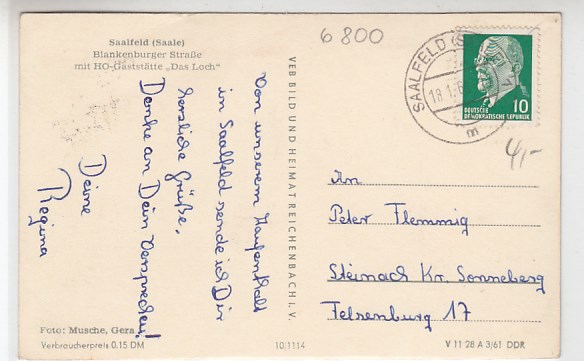 Saalfeld (Saale)
Blankenburger Straße
mit HO-Gaststätte „Das Loch"
6800
SAALFELD (S
18.1.6
m
10
DEUTSCHE
DEMOKRATISCHE REPUBLIK
4,-
Von unserem Aufenthalt
in Saalfeld sende ich Dir
herzliche Grüße.
Denke an Dein Versprechen!
Deine
Regina
VEB BILD UND HEIMAT REICHENBACH I. V.
An
Peter Flemmig
Steinach Kr. Sonneberg
Felsenburg 17
Foto: Musche, Gera
Verbraucherpreis 0,15 DM
10/1114
V 11 28 A 3/61 DDR